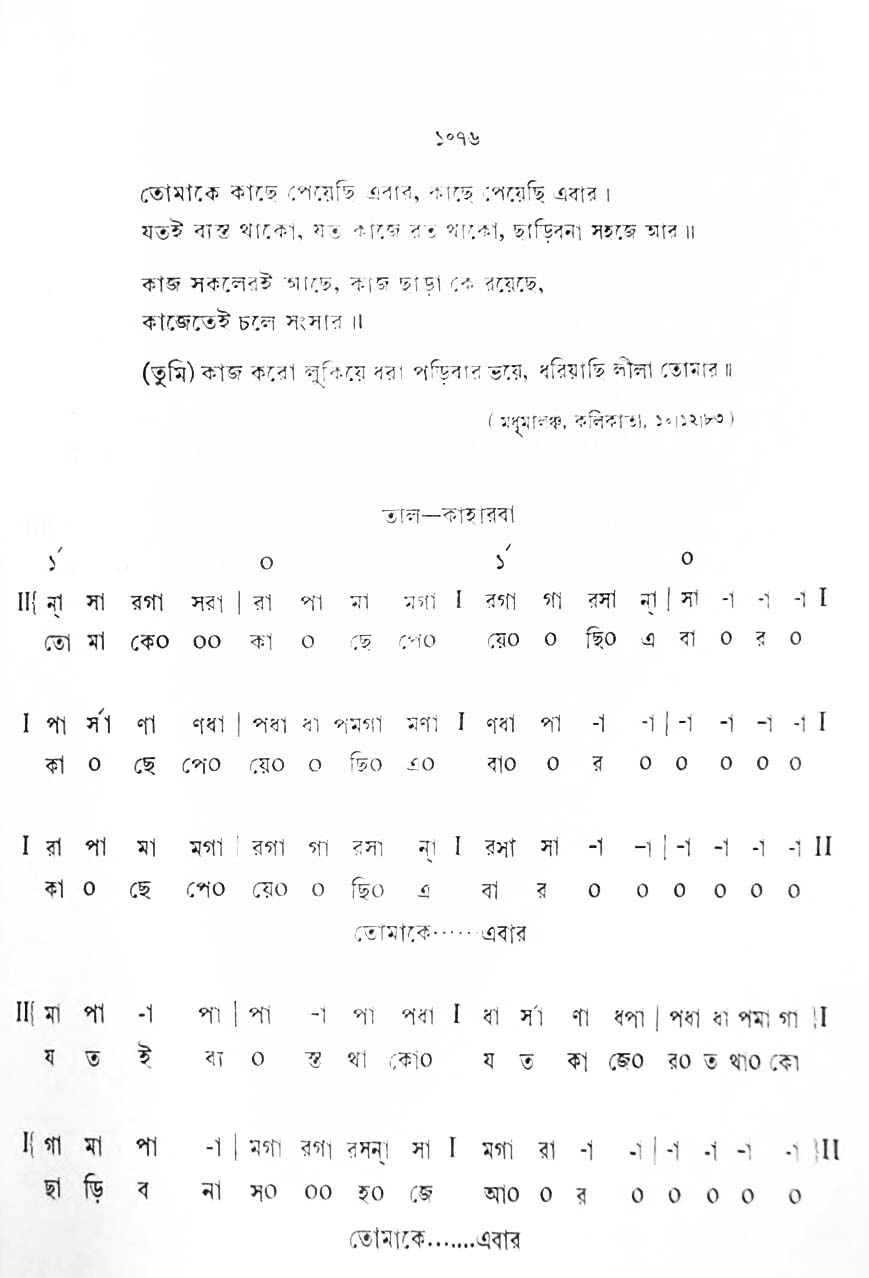 ১০৭৬
তোমাকে কাছে পেয়েছি এবার, কাছে পেয়েছি এবার ।
যতই ব্যস্ত থাকো, যত কাজে রত থাকো, ছাড়িবনা সহজে আর ॥
কাজ সকলেরই আছে, কাজ ছাড়া কে রয়েছে,
কাজেতেই চলে সংসার ॥
(তুমি) কাজ করো লুকিয়ে ধরা পড়িবার ভয়ে, ধরিয়াছি লীলা তোমার ॥
( মধুমালঞ্চ, কলিকাতা, ১০।১২।৮৩ )
তাল—কাহারবা
১´ ০ ১´ ০
II{ ন্া সা রগা সরা | রা পা মা মগা I রগা গা রসা ন্া | সা -া -া -া I
তো মা কে০ ০০ কা ০ ছে পে০ য়ে০ ০ ছি০ এ বা ০ র ০
I পা র্সা ণা ণধা | পধা ধা পমগা মণা I ণধা পা -া -া | -া -া -া -া I
কা ০ ছে পে০ য়ে০ ০ ছি০ এ০ বা০ ০ র ০ ০ ০ ০ ০
I রা পা মা মগা | রগা গা রসা ন্া I রসা সা -া -া | -া -া -া -া II
কা ০ ছে পে০ য়ে০ ০ ছি০ এ বা র ০ ০ ০ ০ ০ ০
তোমাকে······এবার
II{ মা পা -া পা | পা -া পা পধা I ধা র্সা ণা ধপা | পধা ধা পমা গা }I
য ত ই ব্য ০ স্ত থা কো০ য ত কা জে০ র০ ত থা০ কো
I{ গা মা পা -া | মগা রগা রসন্া সা I মগা রা -া -া | -া -া -া -া }II
ছা ড়ি ব না স০ ০০ হ০ জে আ০ ০ র ০ ০ ০ ০ ০
তোমাকে.......এবার